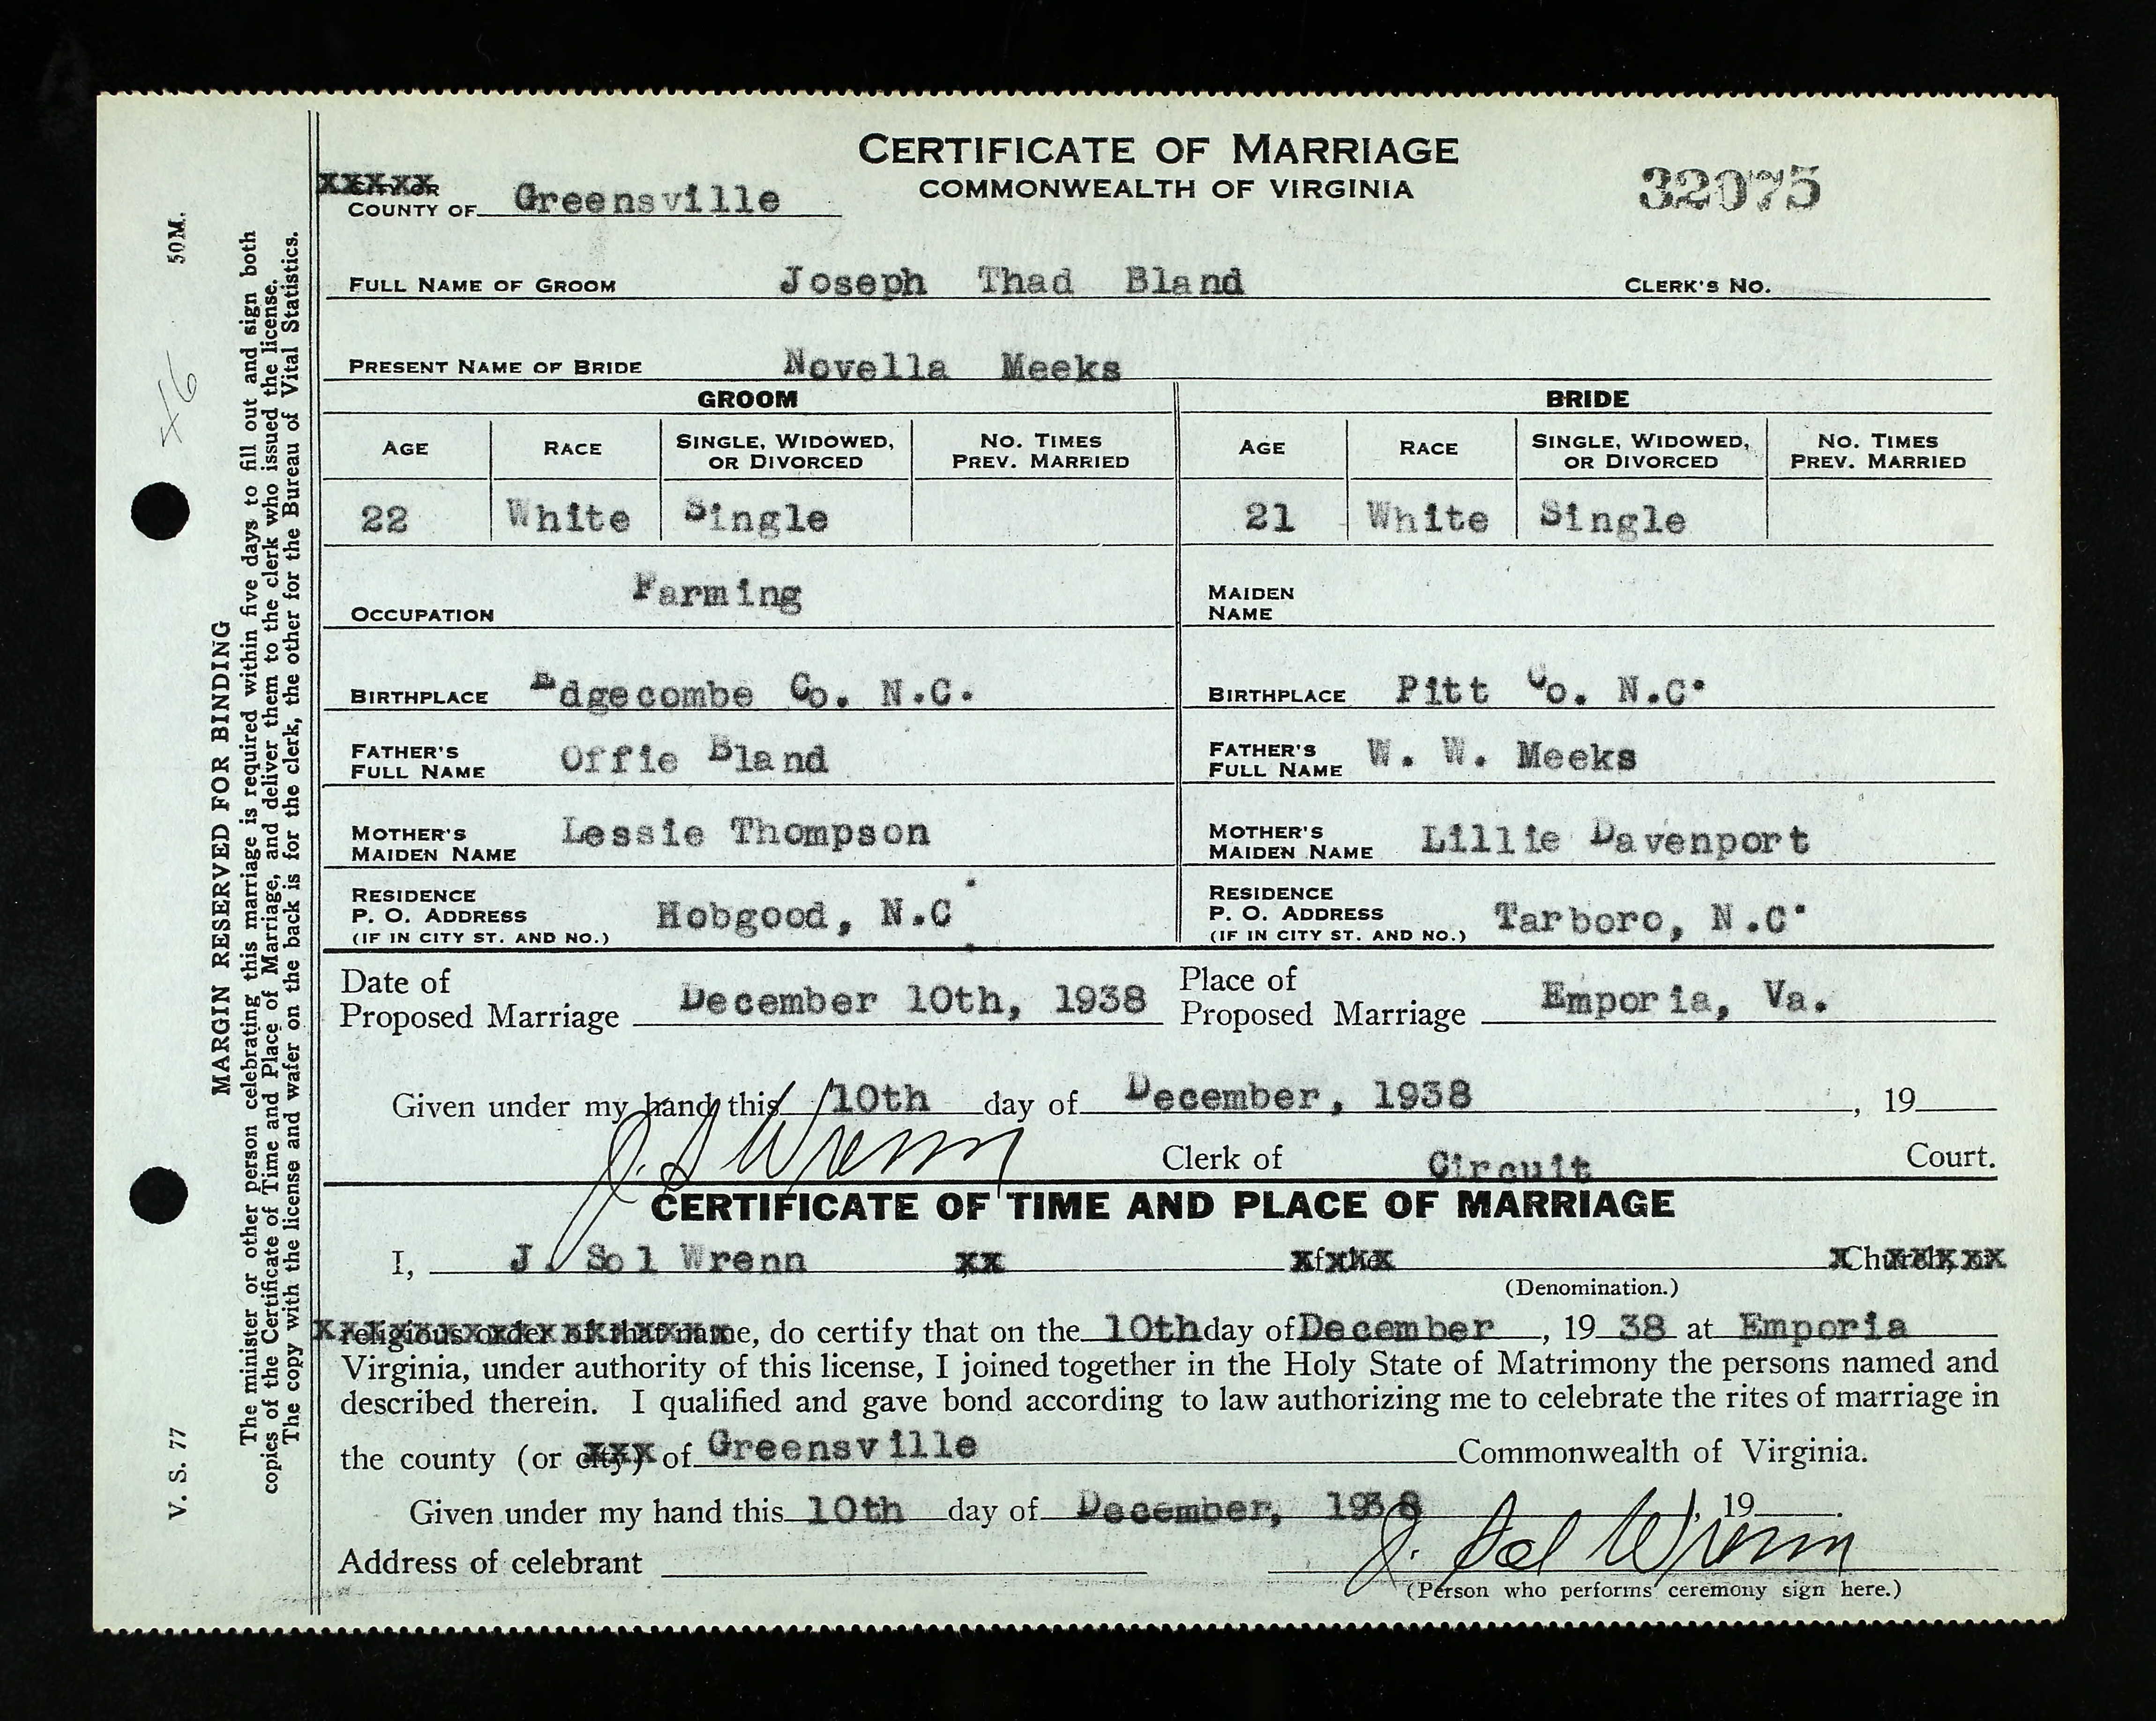 CERTIFICATE OF MARRIAGE
COMMONWEALTH OF VIRGINIA
32075
CITY OR
COUNTY OF Greensville
FULL NAME OF GROOM Joseph Thad Bland CLERK'S NO.
PRESENT NAME OF BRIDE Novella Meeks
GROOM BRIDE
AGE RACE SINGLE, WIDOWED, OR DIVORCED NO. TIMES PREV. MARRIED AGE RACE SINGLE, WIDOWED, OR DIVORCED NO. TIMES PREV. MARRIED
22 White Single 21 White Single
OCCUPATION Farming MAIDEN NAME
BIRTHPLACE Edgecombe Co. N.C. BIRTHPLACE Pitt Co. N.C.
FATHER'S FULL NAME Offie Bland FATHER'S FULL NAME W. W. Meeks
MOTHER'S MAIDEN NAME Lessie Thompson MOTHER'S MAIDEN NAME Lillie Davenport
RESIDENCE P. O. ADDRESS (IF IN CITY ST. AND NO.) Hobgood, N.C. RESIDENCE P. O. ADDRESS (IF IN CITY ST. AND NO.) Tarboro, N.C.
Date of Proposed Marriage December 10th, 1938 Place of Proposed Marriage Emporia, Va.
Given under my hand this 10th day of December, 1938, 19
J. S Wrenn Clerk of Circuit Court.
CERTIFICATE OF TIME AND PLACE OF MARRIAGE
I, J. Sol Wrenn xx of the Church, or
(Denomination.)
religious order of that name, do certify that on the 10th day of December, 19 38 at Emporia
Virginia, under authority of this license, I joined together in the Holy State of Matrimony the persons named and
described therein. I qualified and gave bond according to law authorizing me to celebrate the rites of marriage in
the county (or city) of Greensville Commonwealth of Virginia.
Given under my hand this 10th day of December, 1938, 19
Address of celebrant J. Sol Wrenn
(Person who performs ceremony sign here.)
V. S. 77 50M.
46
MARGIN RESERVED FOR BINDING
The minister or other person celebrating this marriage is required within five days to fill out and sign both
copies of the Certificate of Time and Place of Marriage, and deliver them to the clerk who issued the license.
The copy with the license and wafer on the back is for the clerk, the other for the Bureau of Vital Statistics.